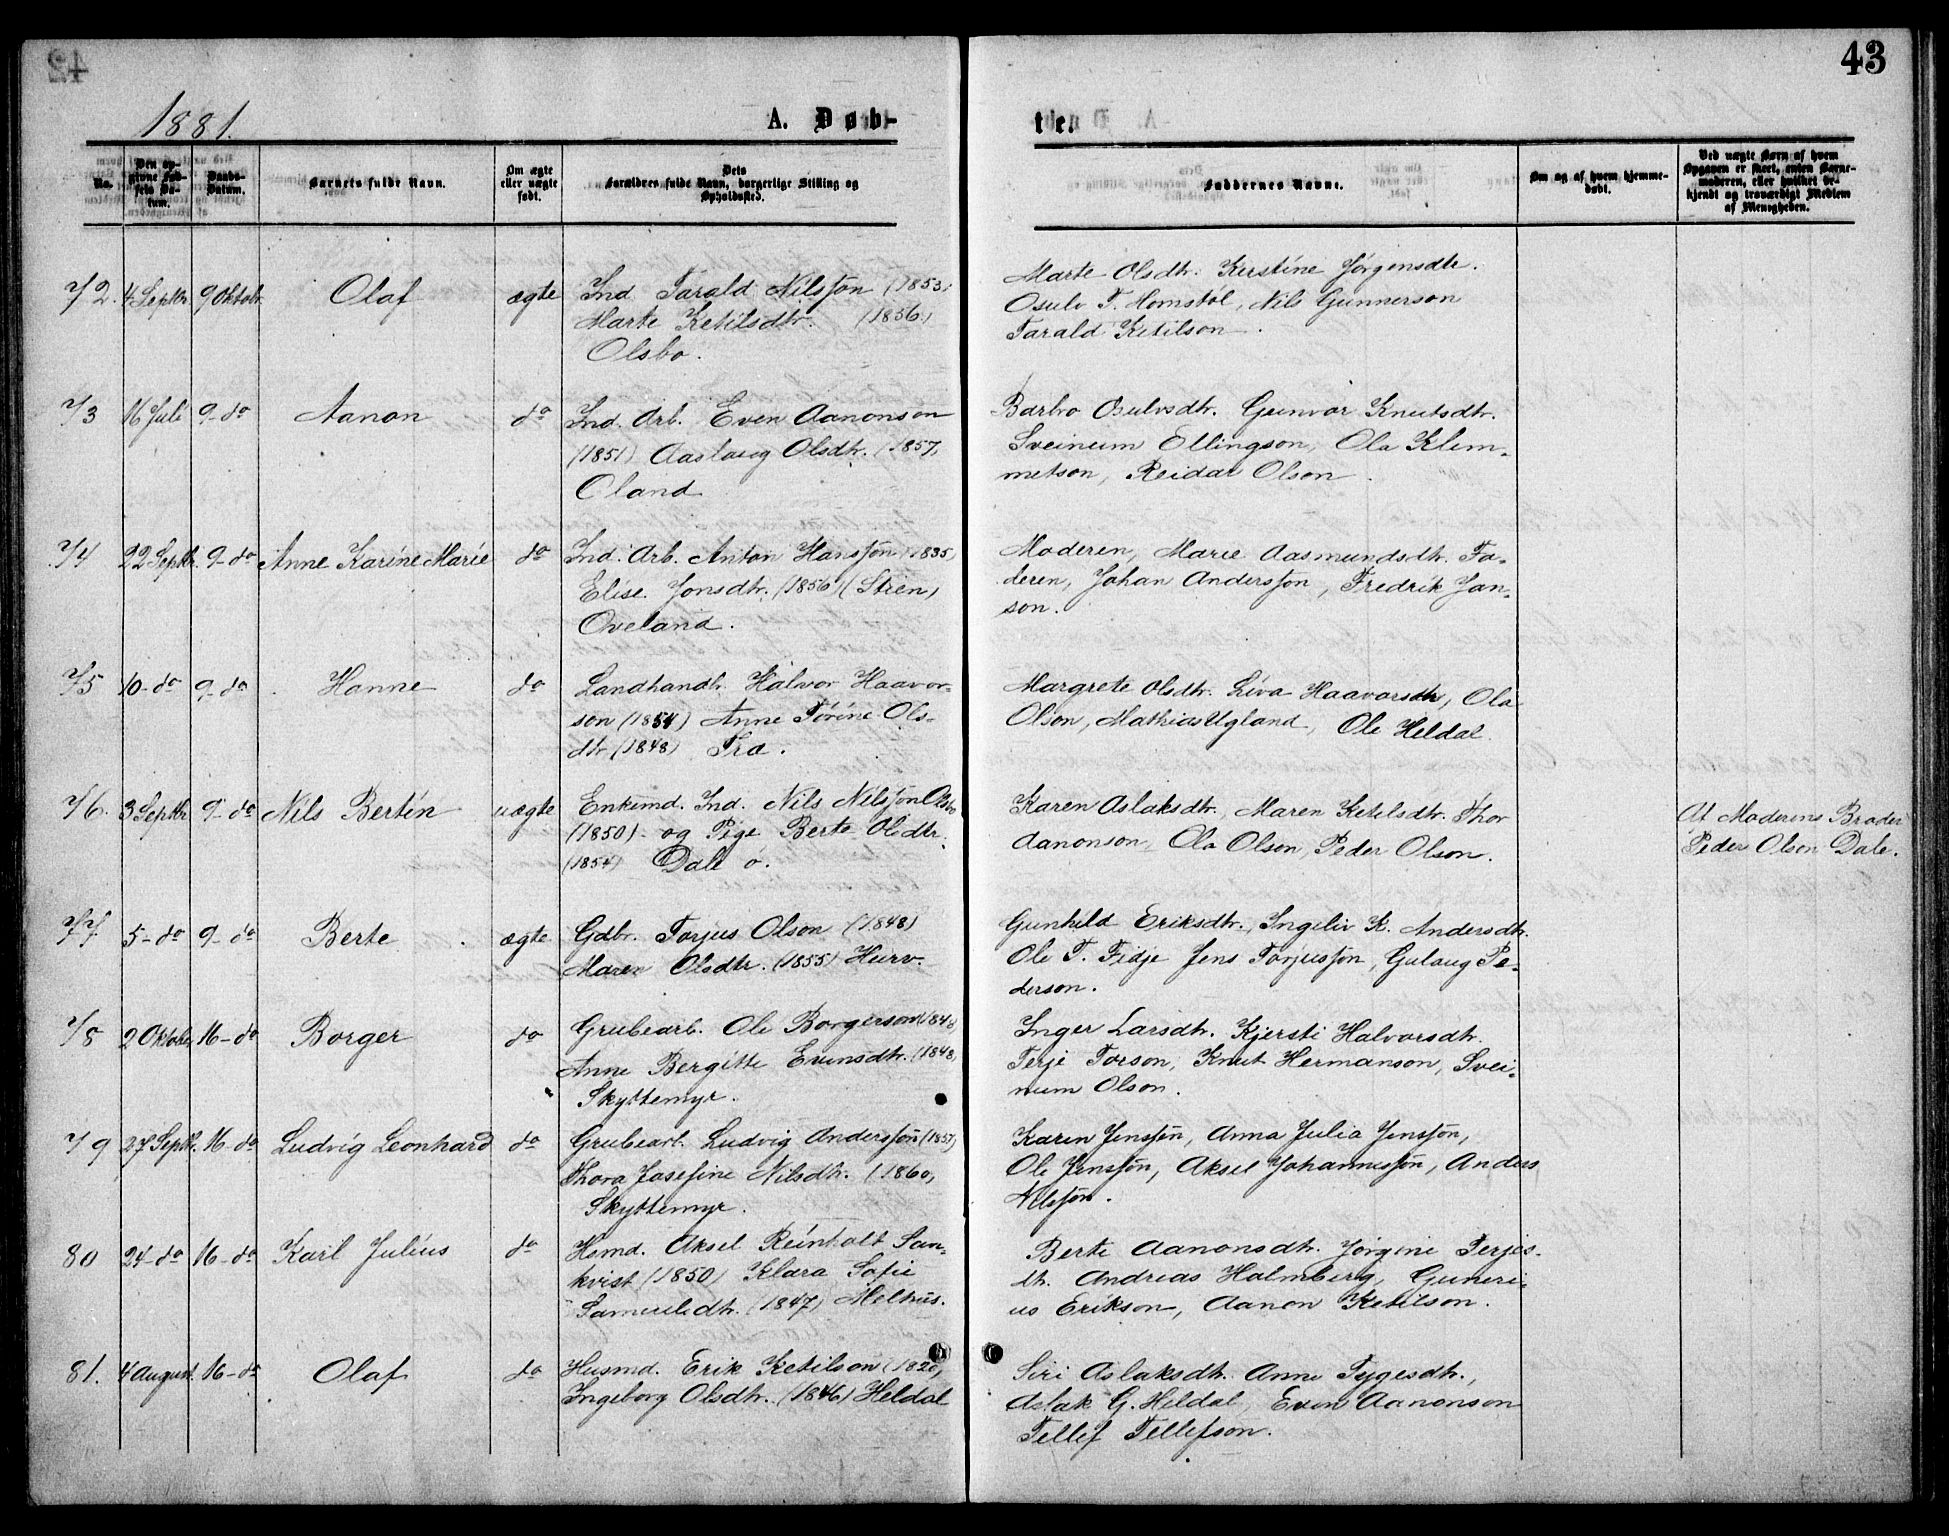 43
1881.
A. Døb-
te.
No.
Den opgivne Fødsels Datum.
Daabs-Datum.
Barnets fulde Navn.
Om ægte eller uægte født.
Dets Forældres fulde Navn, borgerlige Stilling og Opholdssted.
Faddernes Navne.
Om og af hvem hjemmedøbt.
Ved uægte Børn af hvem Opgaven er skeet, enten Barnemoderen, eller hvilket bekjendt og troværdigt Medlem af Menigheden.
72. 4 Septbr 9 Oktobr. Olaf ægte Ind. Tarald Nilsson (1853)
Marte Ketilsdtr. (1856.)
Olsbo.
Marte Olsdtr. Kirstine Jørgensdtr.
Osulv T. Homstøl, Nils Gunnerson
Tarald Ketilson.
73 16 Juli 9-do Aanon do Ind. Arb. Even Aanonson
(1851) Aaslaug Olsdtr. (1857)
Oland
Barbro Osulvsdtr. Gunvor Knutsdtr.
Sveinum Ellingson, Ola Klem-
metson, Reidar Olson.
74 22 Septbr. 9-do Anne Karine Marie do Ind. Arb. Anton Hansson (1835)
Elise Jonsdtr. (1856) (Stien)
Oveland.
Moderen, Marie Aasmundsdtr. Fa-
deren, Johan Andersson, Fredrik Jan-
son.
75 10-do 9-do Hanne do Landhandlr. Halvor Haavor-
son (1854) Anne Torine Ols-
dtr (1848) Tra.
Margrete Olsdtr. Liva Haavorsdtr, Ola
Olson, Mathias Ugland, Ole Heldal.
76. 3 Septbr 9-do Nils Bertin uægte Enkemd. Ind. Nils Nilsson Olsbo
(1850) og Pige Berte Olsdtr.
(1854) Dale ø.
Karen Aslaksdtr., Maren Ketilsdtr. Thor
Aanonson, Ola Olson, Peder Olson.
At Moderens Broder
Peder Olson Dale.
77. 5-do 9-do Berte. ægte Gdbr. Torjus Olson (1848)
Maren Olsdtr. (1855) Hurv.
Gunhild Eriksdtr., Ingeliv K. Andersdtr.
Ole T. Fidje Jens Torjusson, Gulaug Pe-
derson.
78 2 Oktober 16-do Borger do Grubearb. Ole Borgerson (1848)
Anne Bergitte Evensdtr. (1848)
Skyttemyr.
Inger Larsdtr. Kjersti Halvorsdtr.
Terje Torson, Knut Hermanson, Svei-
num Olson.
79 27 Septbr. 16-do Ludvig Leonhard do Grubearb. Ludvig Andersson (1857)
Thora Josefine Nilsdtr. (1860)
Skyttemyr.
Karen Jensson, Anna Julia Jensson,
Ole Jensson, Aksel Johannesson, Anders
Nilsson.
80 24-do 16-do Karl Julius do Hsmd. Aksel Reinholt San-
kvist (1850) Klara Sofie
Samuelsdtr. (1847) Melhus.
Berte Aanonsdtr. Jørgine Terjes-
dtr. Andreas Halmberg, Guneri-
us Erikson, Aanon Ketilson.
81. 4 August. 16-do Olaf do Husmd. Erik Ketilson (1820)
Ingeborg Olsdtr. (1846) Heldal
Siri Aslaksdtr. Anne Tygesdtr.,
Aslak G. Heldal, Even Aanonson
Tellef Tellefson.